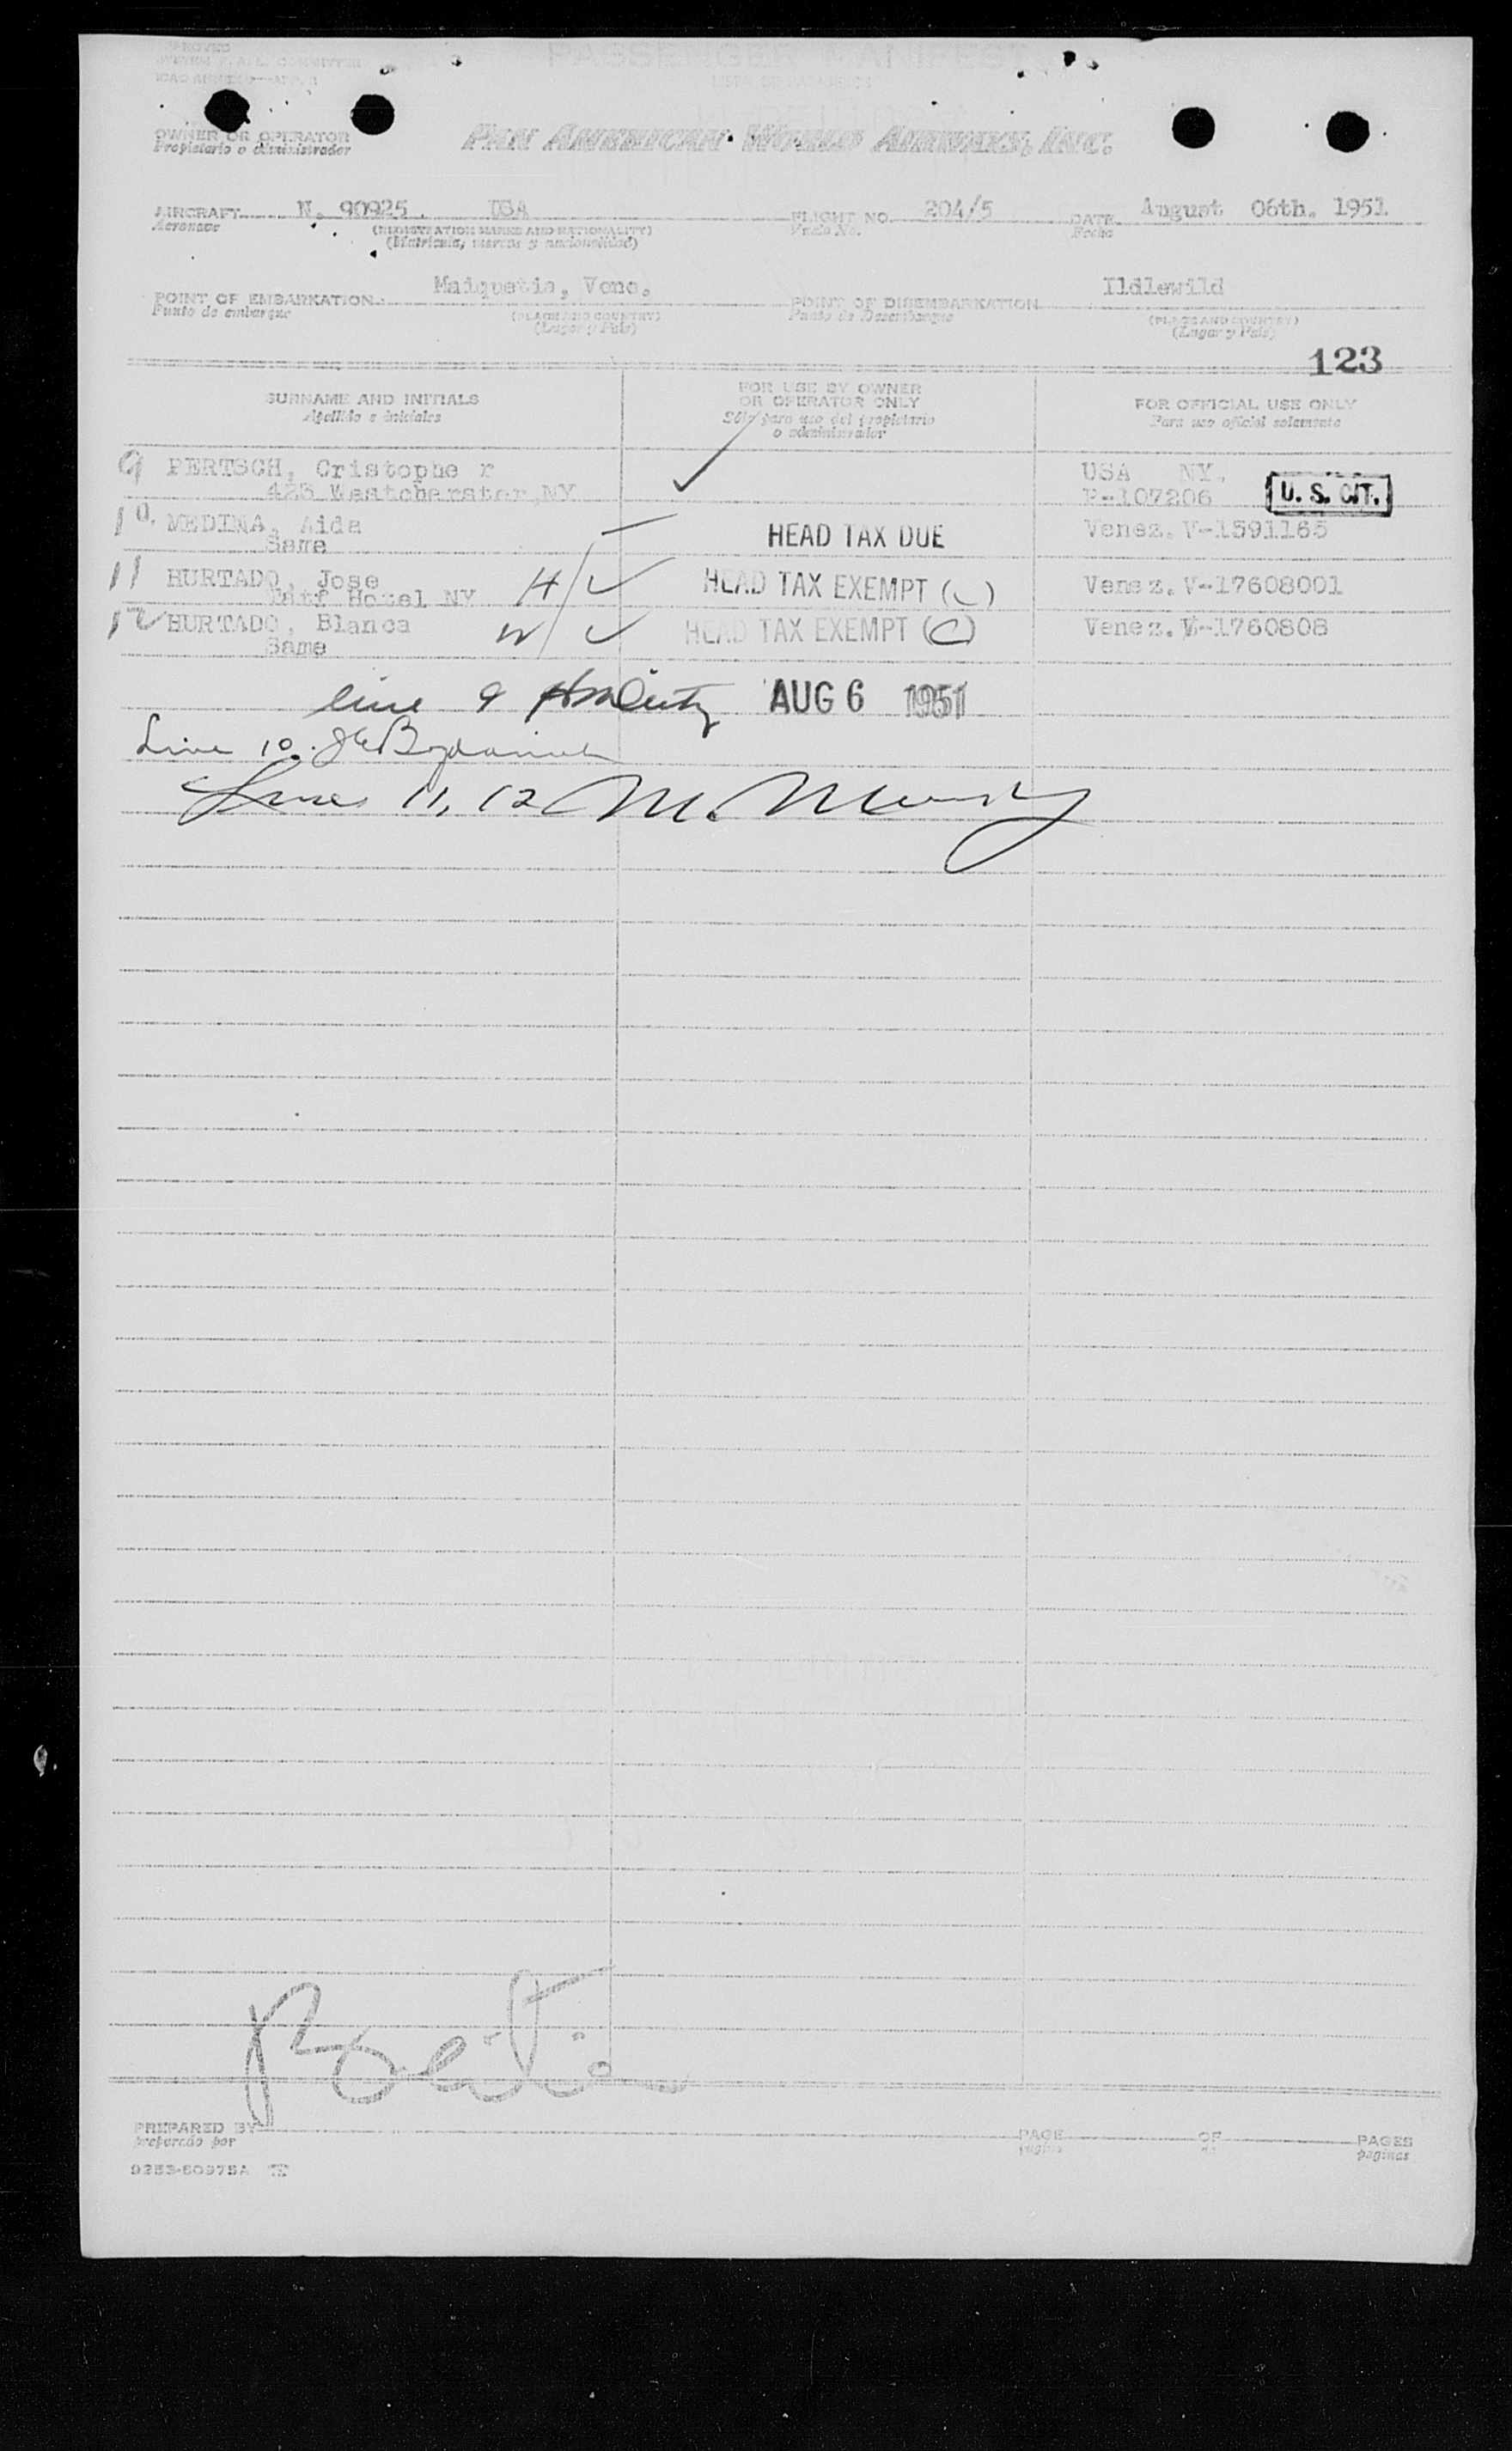 PASSENGER MANIFEST
OWNER OR OPERATOR
Propietario o administrador
PAN AMERICAN WORLD AIRWAYS, INC.
AIRCRAFT N. 90925 USA FLIGHT NO. 204/5 DATE August 06th. 1951
Aeronave (REGISTRATION MARKS AND NATIONALITY) Vuelo No. Fecha
(Matricula, marcas y nacionalidad)
POINT OF EMBARKATION Maiquetia, Vene. POINT OF DISEMBARKATION Ildlewild
Punto de embarque (PLACE AND COUNTRY) Punto de Desembarque (PLACE AND COUNTRY)
(Lugar y País) (Lugar y País)
123
SURNAME AND INITIALS FOR USE BY OWNER OR OPERATOR ONLY FOR OFFICIAL USE ONLY
Apellido e iniciales Sólo para uso del propietario o administrador Para uso oficial solamente
9 PERTSCH, Cristophe r USA NY.
423 Westcherster, NY P-107206 U. S. CIT.
10. MEDINA, Aida HEAD TAX DUE Venez. V-1591165
Same
11 HURTADO, Jose H/ HEAD TAX EXEMPT ( ) Venez. V-17608001
Taif Hotel NY
12 HURTADO, Blanca W/ HEAD TAX EXEMPT (C) Venez. V-1760808
Same
line 9 AUG 6 1951
Line 10.
Lines 11, 12 M.
PREPARED BY PAGE OF PAGES
preparado por página de páginas
9253-60975A